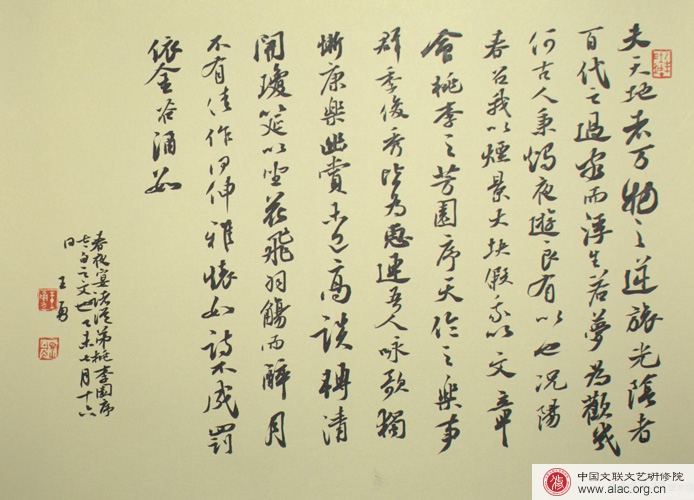 夫天地者万物之逆旅光陰者
百代之過客而浮生若夢為歡幾
何古人秉燭夜遊良有以也況陽
春召我以煙景大块假我以文章
會桃李之芳園序天倫之樂事
群季俊秀皆為惠連吾人咏歌獨
慚康樂幽賞未已高談轉清
開瓊筵以坐花飛羽觴而醉月
不有佳作何伸雅懷如詩不成罰
依金谷酒数
春夜宴諸從弟桃李園序
白之文也 未七月十六
日 王勇
中国文联文艺研修院
www.alac.org.cn